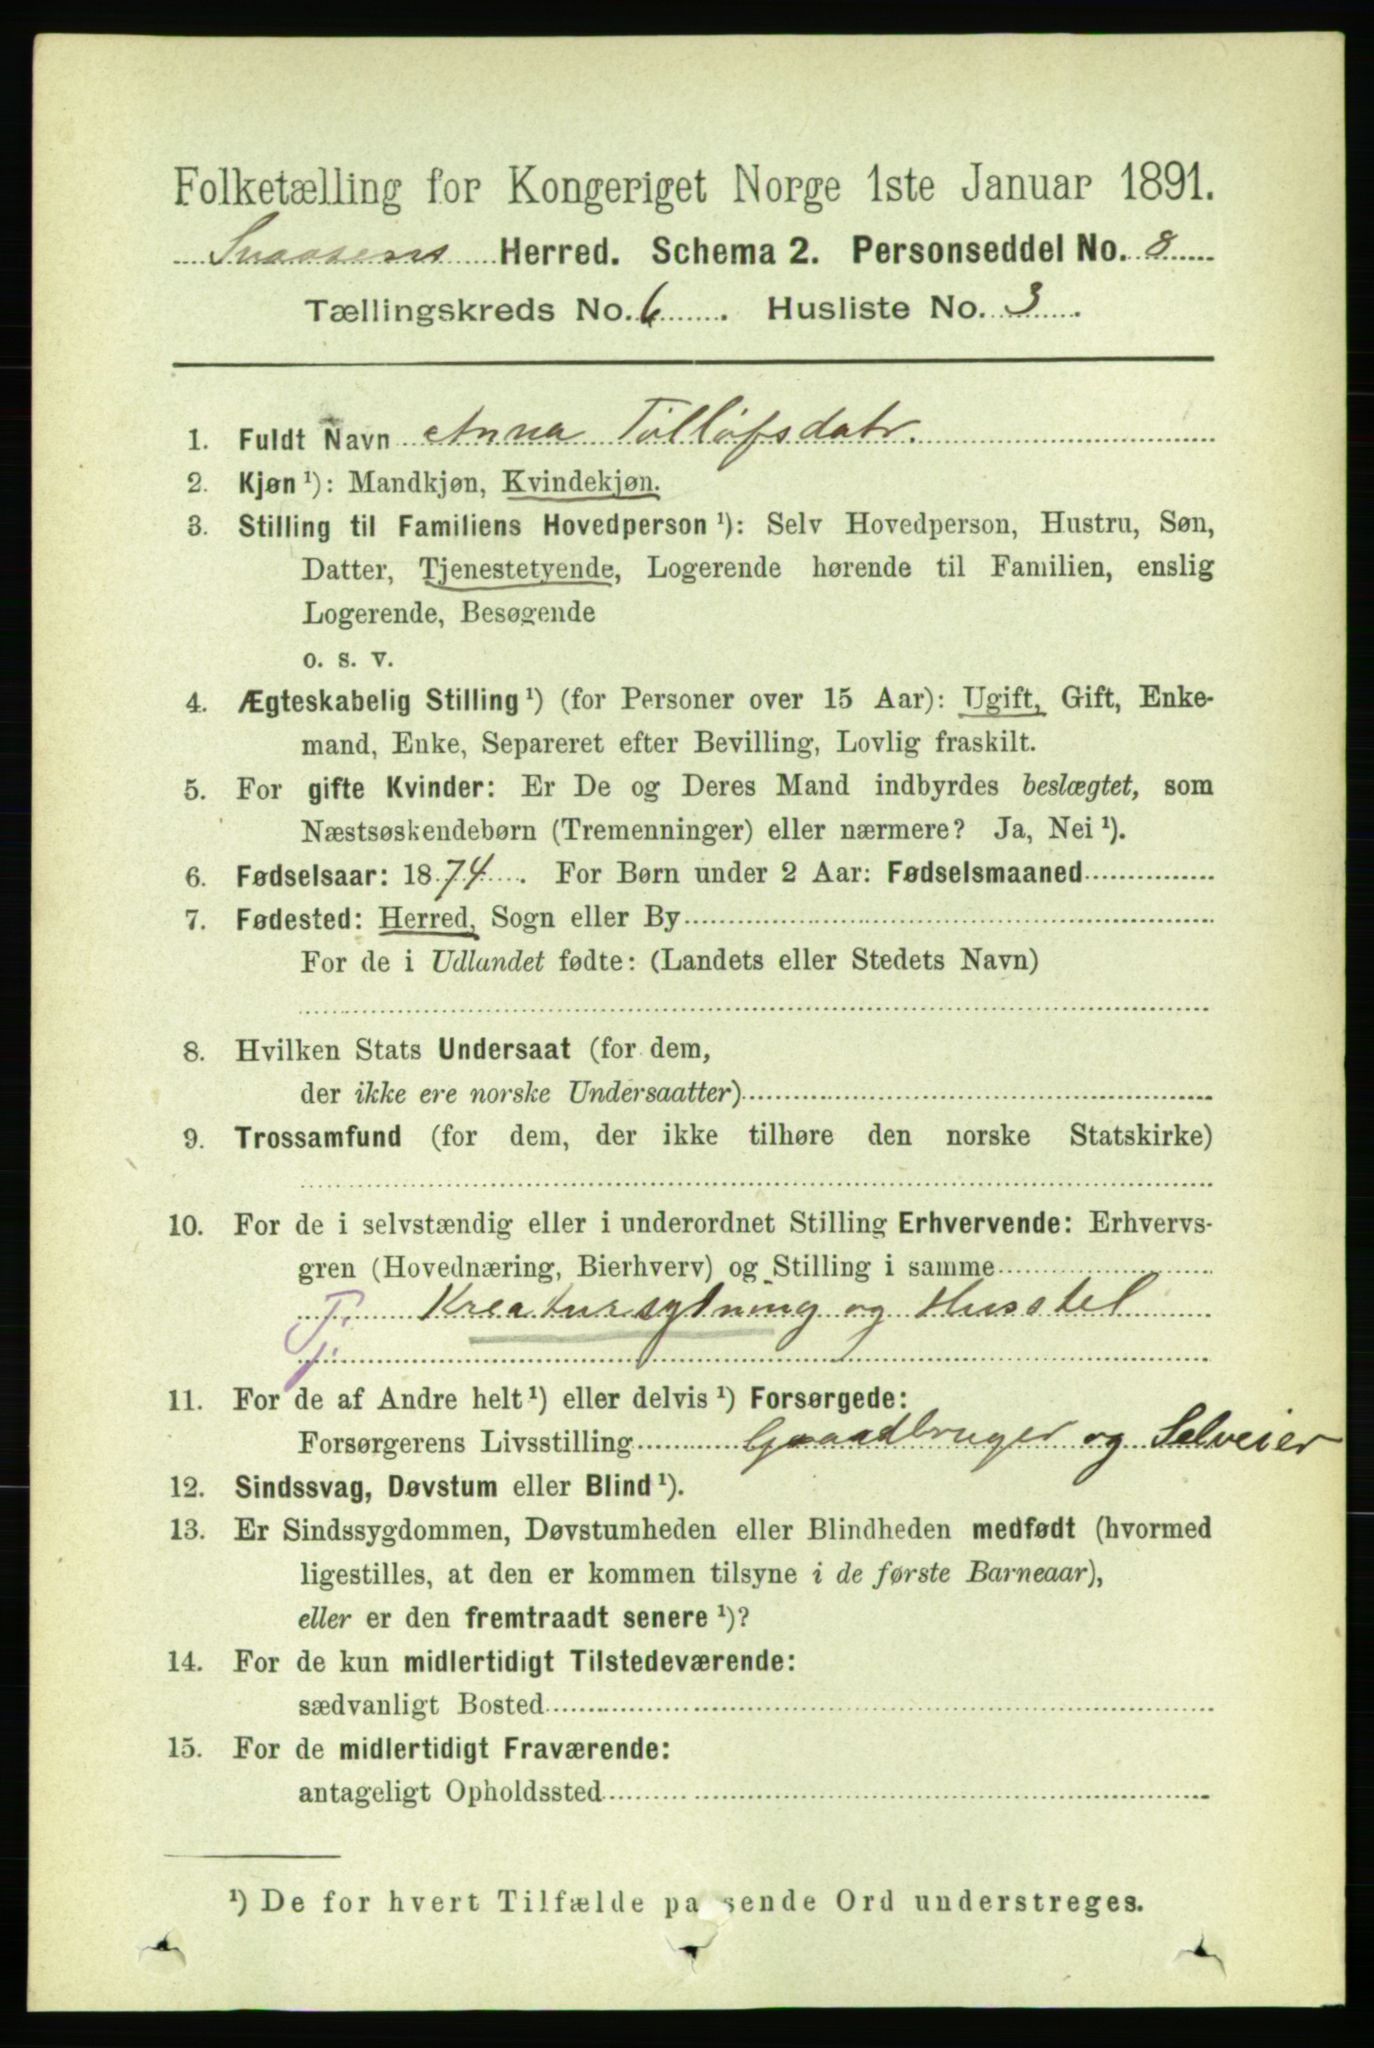 Folketælling for Kongeriget Norge 1ste Januar 1891.
Snaasens Herred. Schema 2. Personseddel No. 8
Tællingskreds No. 6. Husliste No. 3.
1. Fuldt Navn Anna Tollöfsdatr.
2. Kjøn ¹): Mandkjøn, Kvindekjøn.
3. Stilling til Familiens Hovedperson ¹): Selv Hovedperson, Hustru, Søn,
Datter, Tjenestetyende, Logerende hørende til Familien, enslig
Logerende, Besøgende
o. s. v.
4. Ægteskabelig Stilling ¹) (for Personer over 15 Aar): Ugift, Gift, Enke-
mand, Enke, Separeret efter Bevilling, Lovlig fraskilt.
5. For gifte Kvinder: Er De og Deres Mand indbyrdes beslægtet, som
Næstsøskendebørn (Tremenninger) eller nærmere? Ja, Nei ¹).
6. Fødselsaar: 1874. For Børn under 2 Aar: Fødselsmaaned
7. Fødested: Herred, Sogn eller By
For de i Udlandet fødte: (Landets eller Stedets Navn)
8. Hvilken Stats Undersaat (for dem,
der ikke ere norske Undersaatter)
9. Trossamfund (for dem, der ikke tilhøre den norske Statskirke)
10. For de i selvstændig eller i underordnet Stilling Erhvervende: Erhvervs-
gren (Hovednæring, Bierhverv) og Stilling i samme
Tj. Kreaturrygtning og Husstel
11. For de af Andre helt ¹) eller delvis ¹) Forsørgede:
Forsørgerens Livsstilling Gaardbruger og Selveier
12. Sindssvag, Døvstum eller Blind ¹).
13. Er Sindssygdommen, Døvstumheden eller Blindheden medfødt (hvormed
ligestilles, at den er kommen tilsyne i de første Barneaar),
eller er den fremtraadt senere ¹)?
14. For de kun midlertidigt Tilstedeværende:
sædvanligt Bosted
15. For de midlertidigt Fraværende:
antageligt Opholdssted
¹) De for hvert Tilfælde passende Ord understreges.